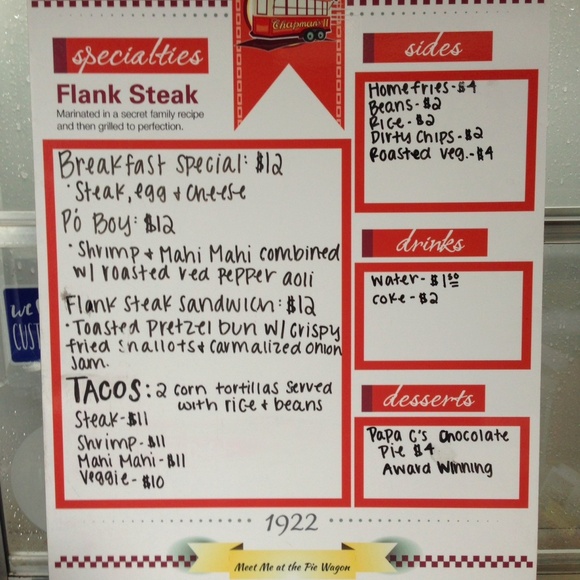 Chapman's
specialties
Flank Steak
Marinated in a secret family recipe
and then grilled to perfection.
Breakfast Special: $12
• Steak, egg + cheese
Pó Boy: $12
• Shrimp + Mahi Mahi combined
w/ roasted red pepper aoli
Flank Steak Sandwich: $12
• Toasted Pretzel bun w/ crispy
fried shallots + carmalized onion
Jam.
TACOS: 2 corn tortillas served
with rice + beans
Steak - $11
Shrimp - $11
Mahi Mahi - $11
Veggie - $10
sides
Home fries - $4
Beans - $2
Rice - $2
Dirty Chips - $2
Roasted veg. - $4
drinks
Water - $1.50
Coke - $2
desserts
Papa C's Chocolate
Pie $4
Award Winning
we
CUST
1922
Meet Me at the Pie Wagon